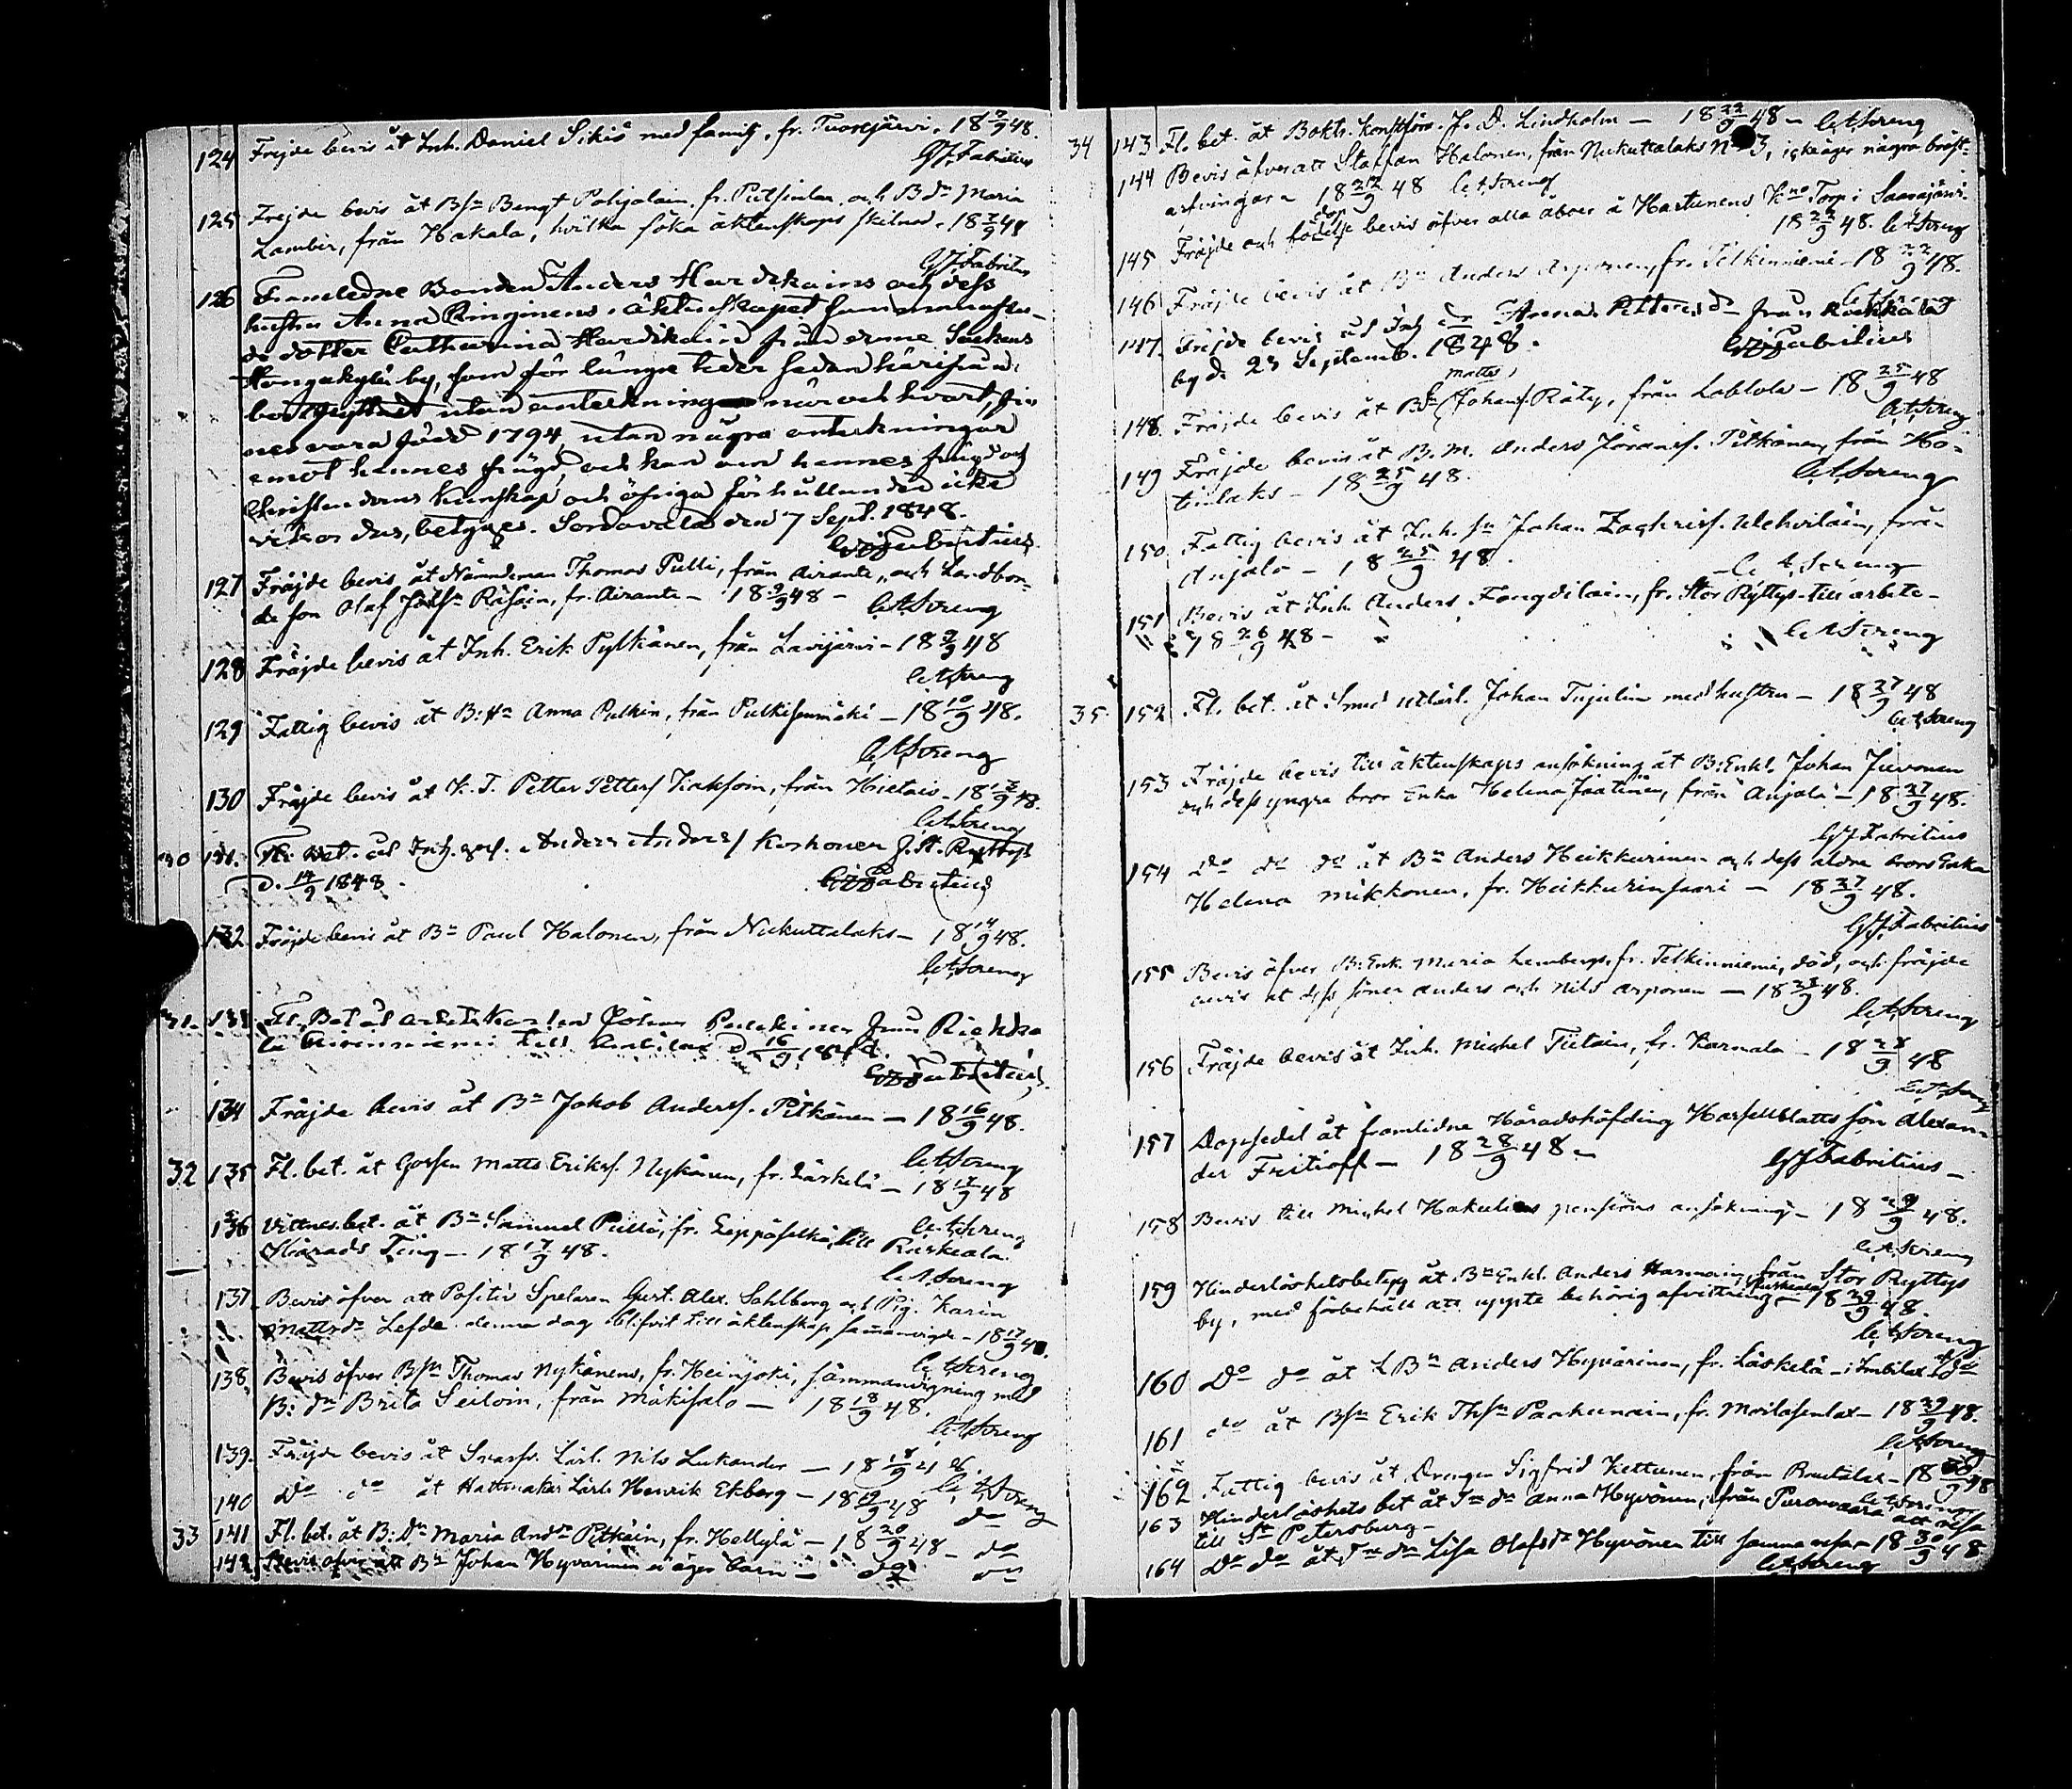 124 Frejde bevis åt Inh. Daniel Sikiö med familj, fr. Tuoksjärvi. 18 7/9 48.
GJFabritius
125 Frejde bevis åt Bsn Bengt Pohjolain, fr. Putsinlan, och Bdn Maria
Lambér, från Hakala, hvilka söka äktenskaps skilnad. 18 7/9 48
GJFabritius
126 Framledne Bonden Anders Hardikains och dess
hustru Anna Ringinens i äktenskapet sammanafla-
de dotter Catharina Hardikain från denne Sockens
by, som för längre tider sedan härifrån
utan anteckning når och hvart, fin
nes vara född 1794, utan några anteckningar
emot hennes frägd, och kan om hennes frägd och
Christendoms kunskap och öfriga förhållanden icke
vitsordas, betygas. Sordavala den 7 Sept. 1848.
GJFabritius
127 Fräjde bevis åt Nämndeman Thomas Pulli, från Airante, och Landbon-
de son Olaf Räsäin, fr. Airante - 18 9/9 48 -
CASoreng
128 Fräjde bevis åt Inh. Erik Pylkänen, från Lavijärvi - 18 9/9 48
CASoreng
129 Fattig bevis åt B. Hu Anna Pulkin, från Pulkisenmäki - 18 10/9 48.
CASoreng
130 Fräjde bevis åt K. T. Petter Petters. Kiaksoin, från Hietais - 18 12/9 48.
CASoreng
30 131. Fl. Bet. åt Inh. Anders Anders. Korhonen f. St. Ryttys
d. 14/9 1848.
GJFabritius
132 Fräjde bevis åt Bn Paul Halonen, från Nukuttalaks - 18 14/9 48.
CASoreng
31. 133 Fl. Bet åt arbets Karlen Johan från Riekka
la till Imbilax d 16/9 1848.
GJFabritius
134 Fräjde bevis åt Bn Jakob Anders. Pitkänen - 18 16/9 48.
CASoreng
32 135 Fl. bet. åt Gossen Matts Eriks. Nykänen, fr. Läskelä - 18 17/9 48
CASoreng
136 Vittnes bet. åt Bn Samuel Pulli, fr. Leppäselkä, till Ruskeala
Härads Ting - 18 17/9 48.
CASoreng
137 Bevis öfver att Positiv Spelaren Gust. Alex. Sahlberg och Pig. Karin
Mattsdr Lefde denna dag blifvit till äktenskap sammanvigde - 18 17/9 48.
CASoreng
138. Bevis öfver Bsn Thomas Nykänens, fr. Heinjoki, sammanvigning med
B: dn Brita Seiloin, från Mäkisalo - 18 18/9 48.
CASoreng
139. Fräjde bevis åt Svarfv. Lärl. Nils Lukander - 18 18/9 48.
CASoreng
140 Do do åt Hattmakar Lärl. Henrik Ekberg - 18 19/9 48 do
33 141 Fl. bet. åt B: Dn Maria Andsdr Pitkäin, fr. Hellylä - 18 20/9 48 - do
142 Bevis öfver att Bn Johan Hyvärinen ei äger barn - do do
34 143 Fl. bet. åt Bokh. J. D. Lindholm - 18 22/9 48 - CASoreng
144 Bevis öfver att Staffan Halonen, från Nukuttalaks No 3, icke äger några bröst-
arfvingar - 18 22/9 48 CASoreng
145 Fräjde och födelse dop bevis öfver alla åboer å Hartunens Kno Torp i Saarajärvi.
18 22/9 48. CASoreng
146 Fräjde bevis åt Bn Anders Arponen, fr. Telkinniemi - 18 22/9 48.
CASoreng
147. Fräjde bevis åt Inh dn Anna Pettersdr från Riekkala
by d. 23 Septemb. 1848.
GJFabritius
148. Fräjde bevis åt Bsn (Matts) Johans. Räty, från Lahlola - 18 25/9 48
CASoreng
149 Fräjde bevis åt B. M. Anders Jörans. Pitkänen, från Ho-
tinlaks - 18 25/9 48.
CASoreng
150 Fattig bevis åt Inh. sn Johan Zachriss. Uehviläin, från
Anjala - 18 25/9 48.
CASoreng
151 Bevis åt Inh. Anders Fongdilain, fr. Stor Ryttys till arbete -
18 26/9 48 -
CASoreng
35 152 Fl. bet. åt Smed utlärl. Johan Tujulin med hustru - 18 27/9 48
CASoreng
153 Fräjde bevis till äktenskaps ansökning åt B: Enkl. Johan Juvonen
och dess yngre bror Enka Helena Jaatinen, från Anjala - 18 27/9 48.
GJFabritius
154 Do do do åt Bn Anders Heikkurinen och dess äldre brors Enka
Helena Mikkonen, fr. Heikkurinsaari - 18 27/9 48.
GJFabritius
155 Bevis öfver B: Enk. Maria Lembergs, fr. Telkinniemi, död, och fräjde
bevis åt dess söner Anders och Nils Arponen - 18 28/9 48.
CASoreng
156 Fräjde bevis åt Inh. Michel Tiitain, fr. Karmala - 18 28/9 48
CASoreng
157 Dopsedel åt framlidne Häradshöfding Harfeldtblatts son Alexan-
der Fritioff - 18 28/9 48 -
GJFabritius -
158 Bevis till Michel Hakulins pensions ansökning - 18 29/9 48.
CASoreng
159 Hinderlöshetsbetyg åt Bn Enkl. Anders Harmoin, från Stor Ryttys
by, med förbehåll att uppte behörig afvittring Ruskeala - 18 29/9 48.
CASoreng
160 Do do åt L Bn Anders Hyvärinen, fr. Läskelä - i Imbilax do do
161 do åt Bsn Erik Thsn Paakunain, fr. Moilasenlax - 18 29/9 48.
CASoreng
162 Fattig bevis åt Drengen Sigfrid Kettunen, från Rautalax - 18 30/9 48
CASoreng
163 Hinderlöshets bet åt In dn Anna Hyvönen, från Purovaara att resa
till St Petersburg -
164 Do do åt In dn Lisa Olofsdr Hyvönen till samma resa - 18 30/9 48
CASoreng